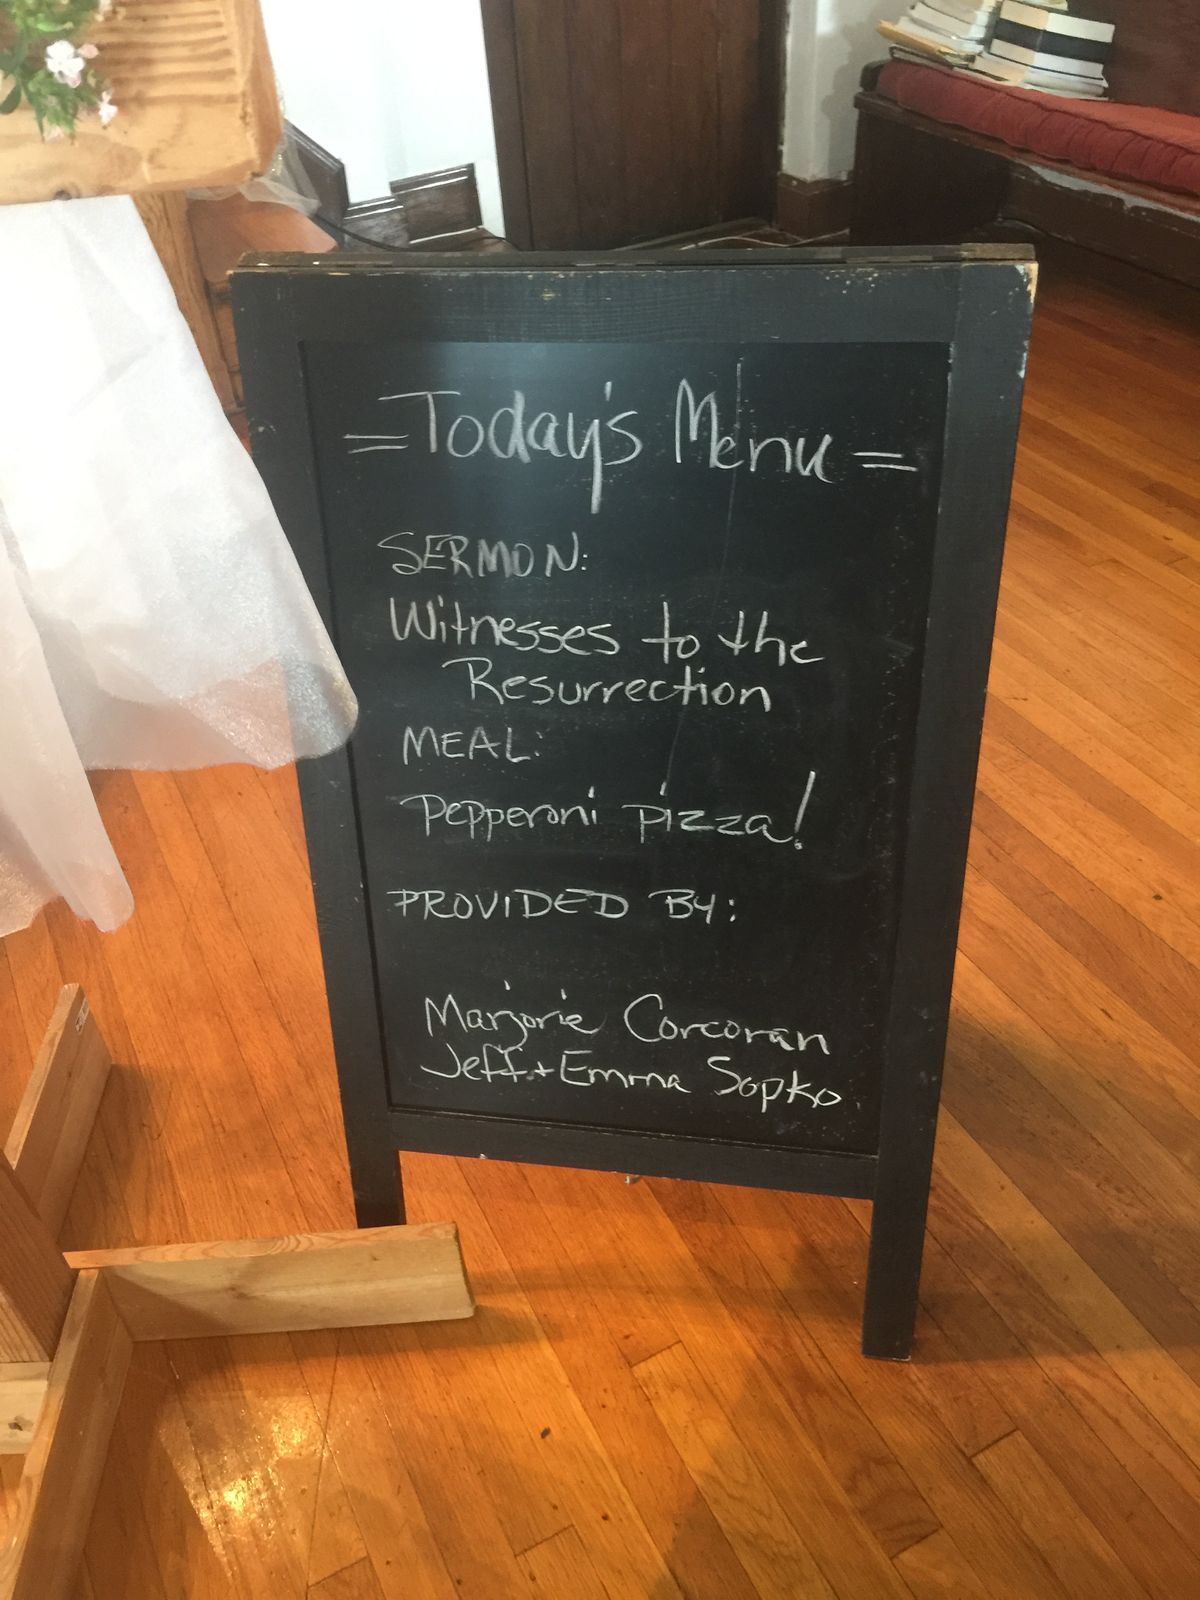 =Today's Menu=
SERMON:
Witnesses to the
Resurrection
MEAL:
Pepperoni pizza!
PROVIDED By:
Marjorie Corcoran
Jeff + Emma Sopko